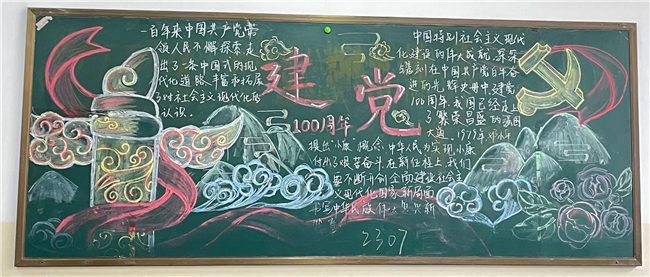 一百年来中国共产党带
领人民不懈探索走
出了一条中国式的现
代化道路,丰富和拓展
了对社会主义现代化的
认识.
建党
100周年
中国特别社会主义现代
化建设的伟大成就,深深
镌刻在中国共产党百年奋
进的光辉史册中,建党
100周年,我国已经走上
了繁荣昌盛的强国
大道.1979年,邓小平
提出“小康”概念,中华人民为实现小康
付出了艰苦奋斗,在新征程上,我们
要不断开创全面建设社会主
义现代化国家新局面
书写中华民族伟大复兴新
2307